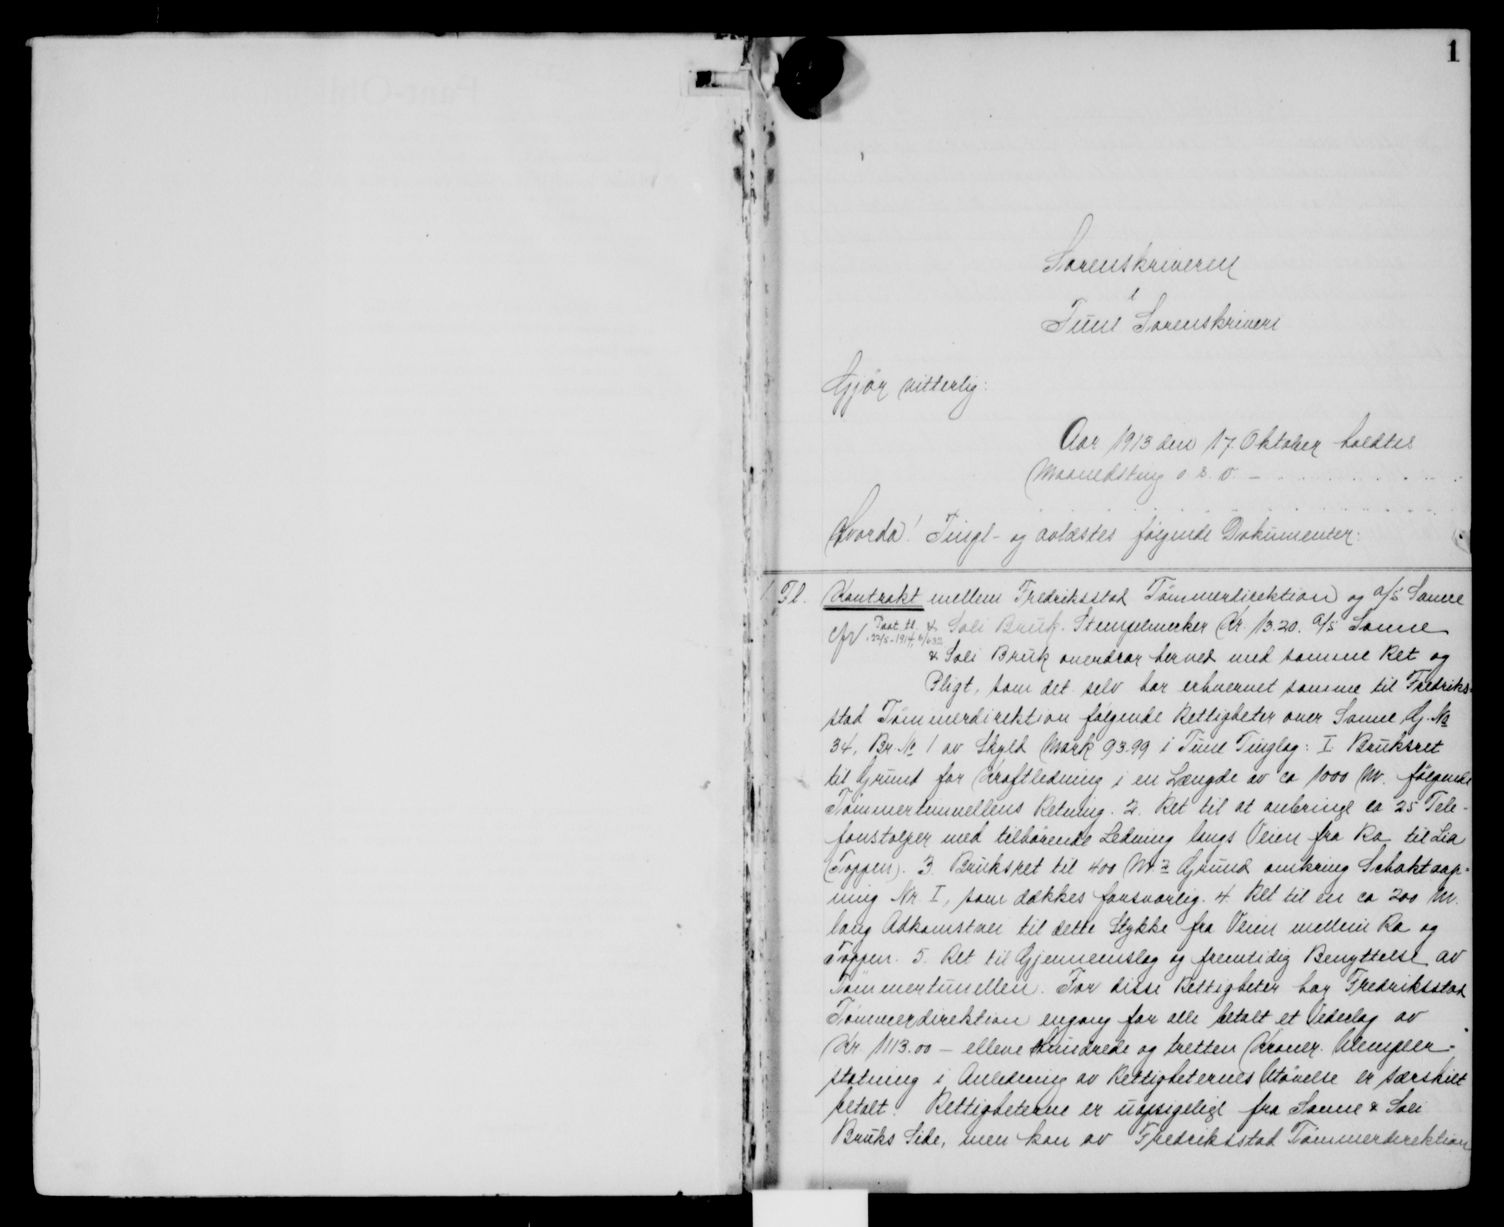 1
Sorenskriveren
i
Tune Sorenskriveri
Gjör vitterlig:
Aar 1913 den 17. Oktober holdtes
Maanedsting o. s. v. –
Hvorda! Tingl- og avlæstes følgende Dokumenter:
1. Tl. Kontrakt mellem Fredriksstad Tömmerdirektion og a/s Sanne
& Soli Bruk. Stempelmerker Kr. 13.20. a/s Sanne
& Soli Bruk overdrar herved med samme Ret og
Pligt, som det selv har erhvervet samme til Fredriks-
stad Tömmerdirektion følgende Rettigheter over Sanne G. No
34, Br. No 1 av Skyld Mark 93.99 i Tune Tinglag: I. Bruksret
til Grund for Kraftledning i en Længde av ca 1000 M. følgende
Tömmertunnellens Retning. 2. Ret til at anbringe ca 25 Tele-
fonstolper med tilhörende Ledning langs Veien fra Ra til Lia
(Toppen). 3. Bruksret til 400 M.2 Grund omkring Schaktaap-
ning Nr. I, som dækkes forsvarlig. 4. Ret til en ca 200 M.
lang Adkomstvei til dette Stykke fra Veien mellem Ra og
Toppen. 5. Ret til Gjennemslag og fremtidig Benyttelse av
Tömmertunellen. For disse Rettigheter har Fredriksstad
Tömmerdirektion engang for alle betalt et Vederlag av
Kr. 1113.00 – elleve Hundrede og tretten Kroner. Ulempeer-
statning i Anledning av Rettigheternes Utövelse er særskilt
betalt. Rettigheterne er uopsigelige fra Sanne & Soli
Bruks Side, men kan av Fredriksstad Tömmerdirektion